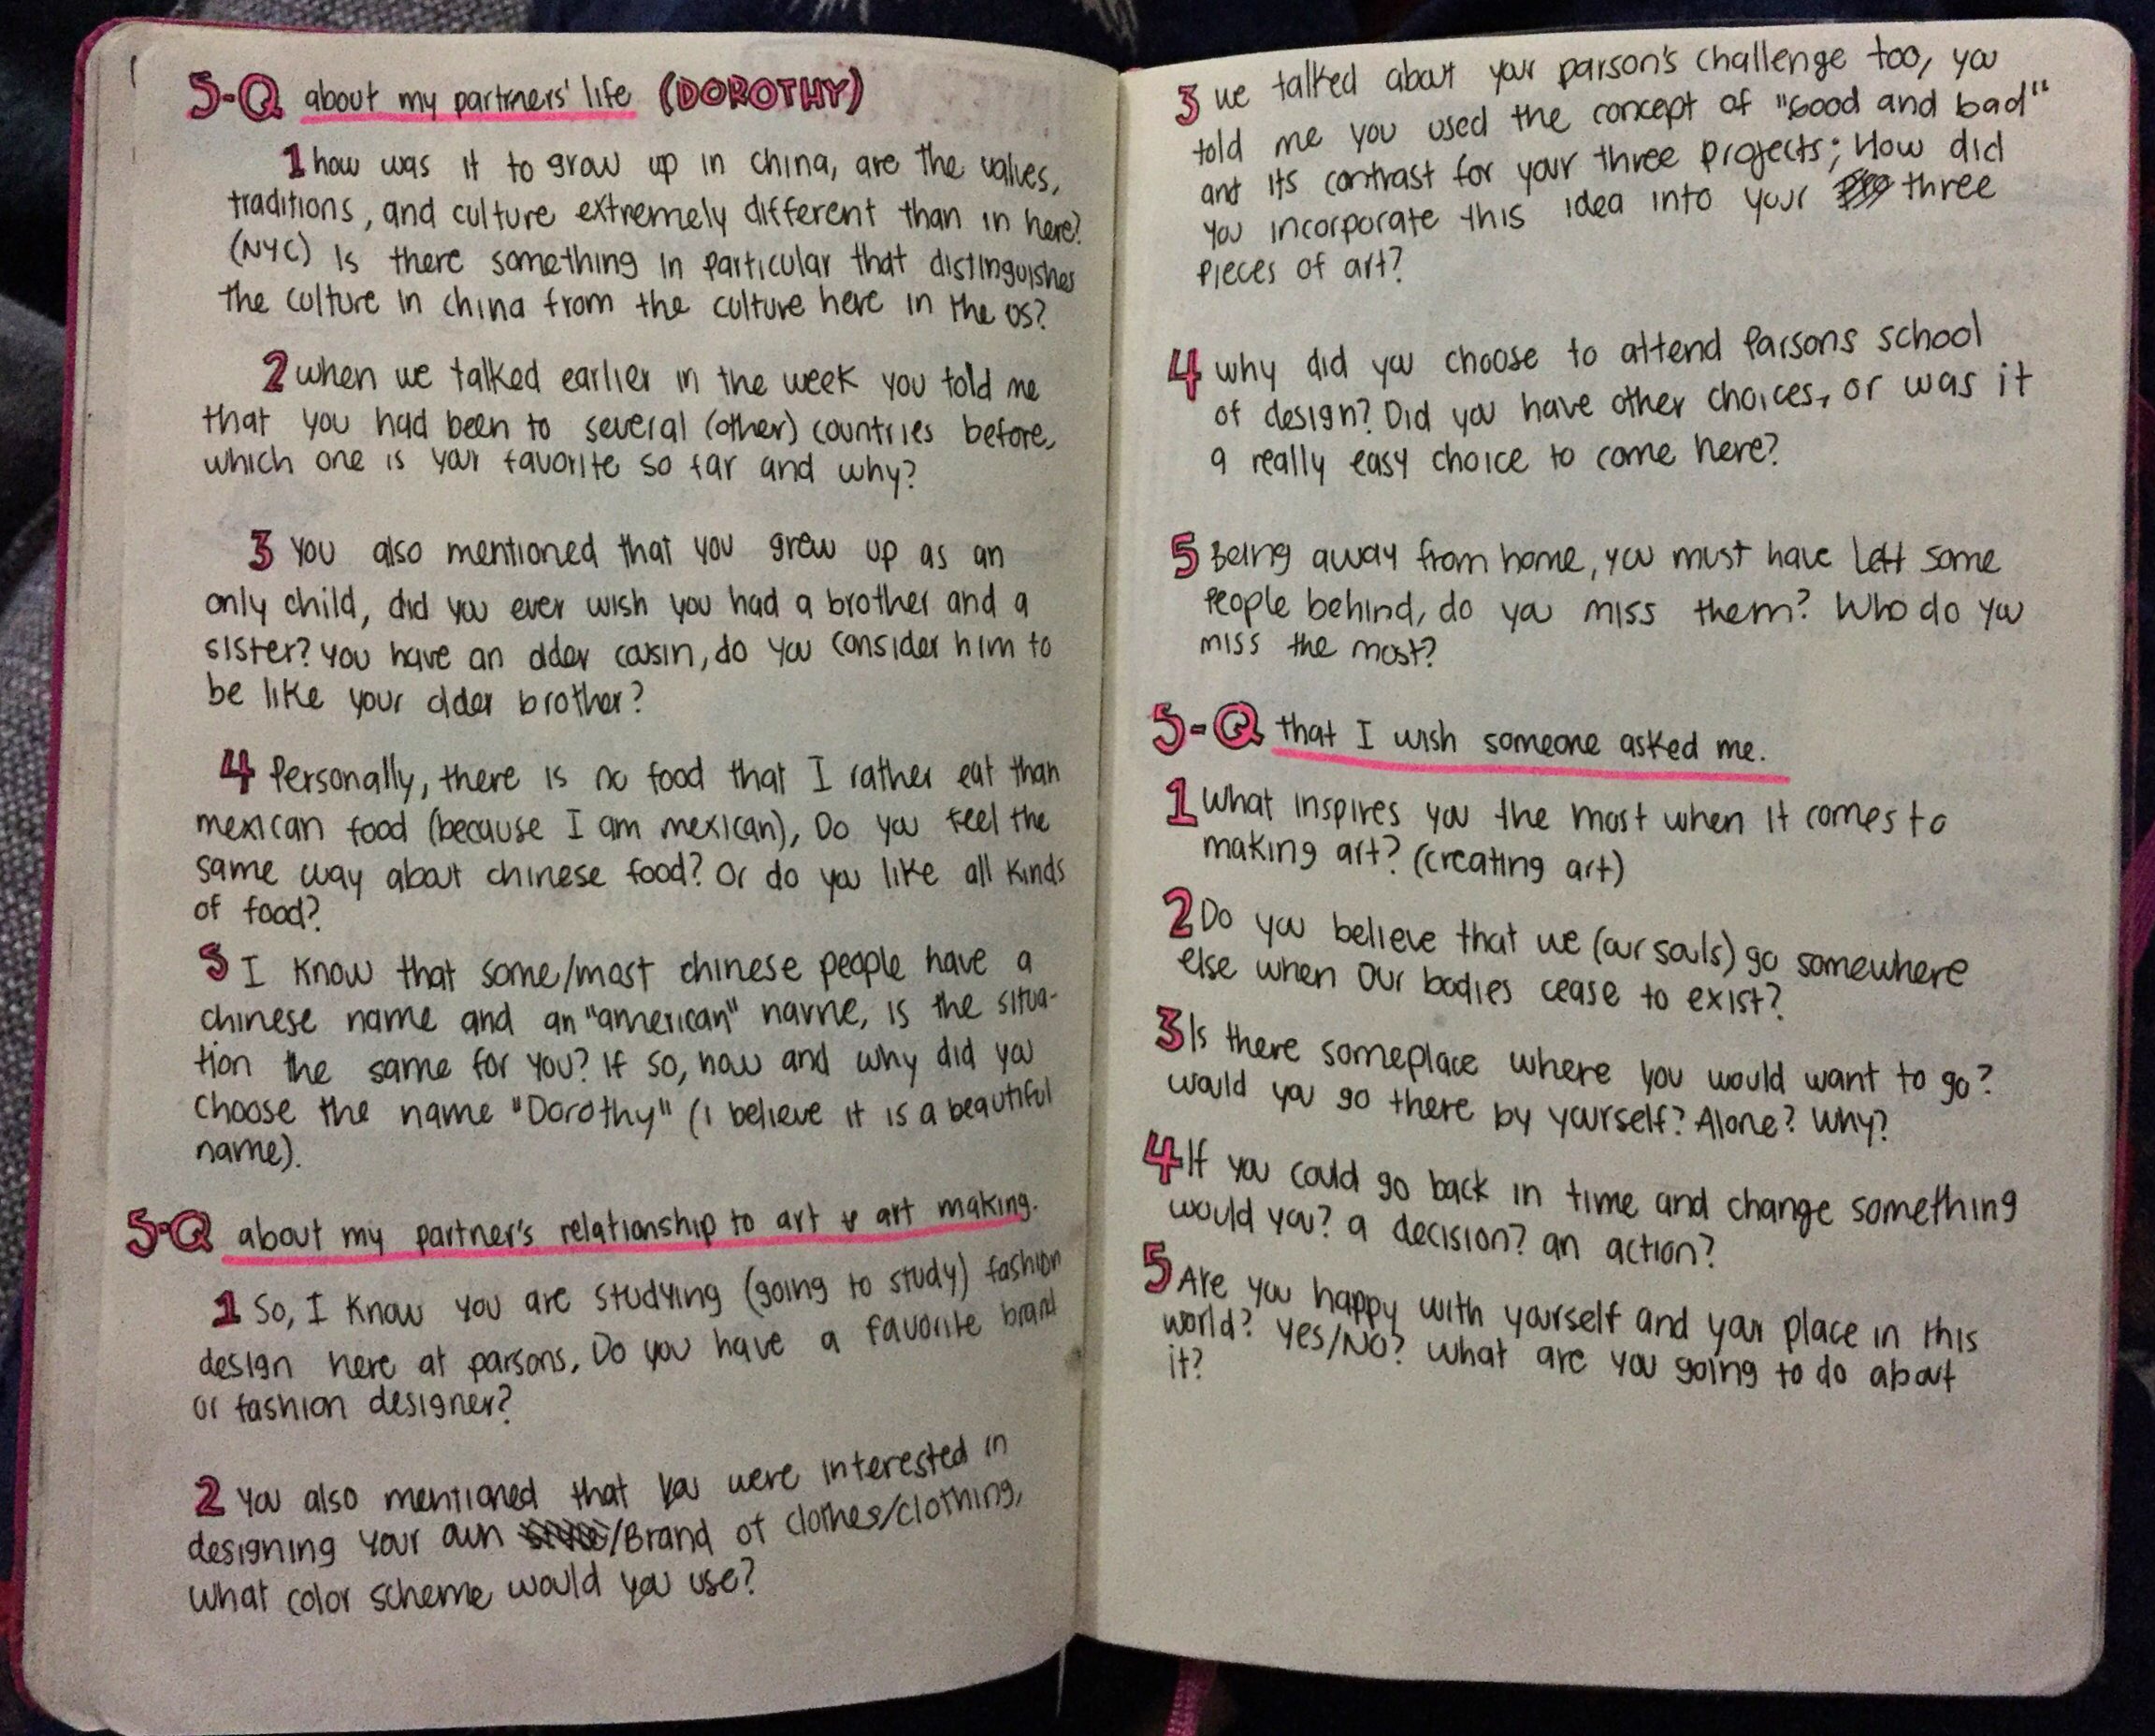 5-Q about my partners' life (DOROTHY)
1 how was it to grow up in china, are the values,
traditions, and culture extremely different than in here?
(NYC) Is there something in particular that distinguishes
the culture in china from the culture here in the US?
2 when we talked earlier in the week you told me
that you had been to several (other) countries before,
which one is your favorite so far and why?
3 You also mentioned that you grew up as an
only child, did you ever wish you had a brother and a
sister? you have an older cousin, do you consider him to
be like your older brother?
4 Personally, there is no food that I rather eat than
mexican food (because I am mexican), Do you feel the
same way about chinese food? Or do you like all kinds
of food?
5 I know that some/most chinese people have a
chinese name and an "american" name, is the situa-
tion the same for you? If so, how and why did you
choose the name "Dorothy" (I believe it is a beautiful
name).
5-Q about my partner's relationship to art & art making.
1 So, I know you are studying (going to study) fashion
design here at parsons, Do you have a favorite brand
or fashion designer?
2 You also mentioned that you were interested in
designing your own /Brand of clothes/clothing,
what color scheme would you use?
3 we talked about your parson's challenge too, you
told me you used the concept of "Good and bad"
and its contrast for your three projects; How did
you incorporate this idea into your three
pieces of art?
4 why did you choose to attend Parsons school
of design? Did you have other choices, or was it
a really easy choice to come here?
5 Being away from home, you must have left some
people behind, do you miss them? Who do you
miss the most?
5-Q that I wish someone asked me.
1 What inspires you the most when it comes to
making art? (creating art)
2 Do you believe that we (our souls) go somewhere
else when our bodies cease to exist?
3 Is there someplace where you would want to go?
would you go there by yourself? Alone? Why?
4 If you could go back in time and change something
would you? a decision? an action?
5 Are you happy with yourself and your place in this
world? Yes/NO? What are you going to do about
it?